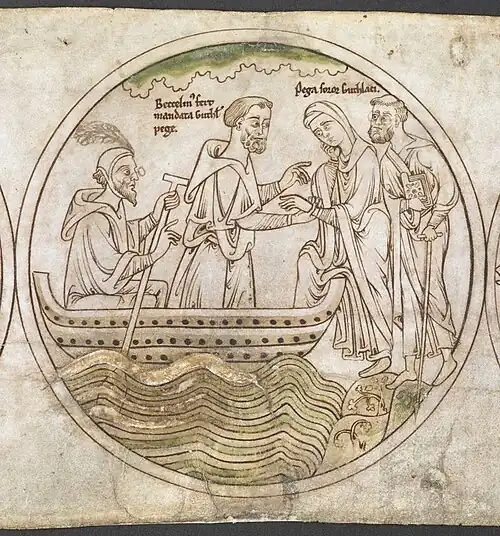 Beccelinꝰ fert
mandata Guthl'
pege.
Pega soror Guthlaci.